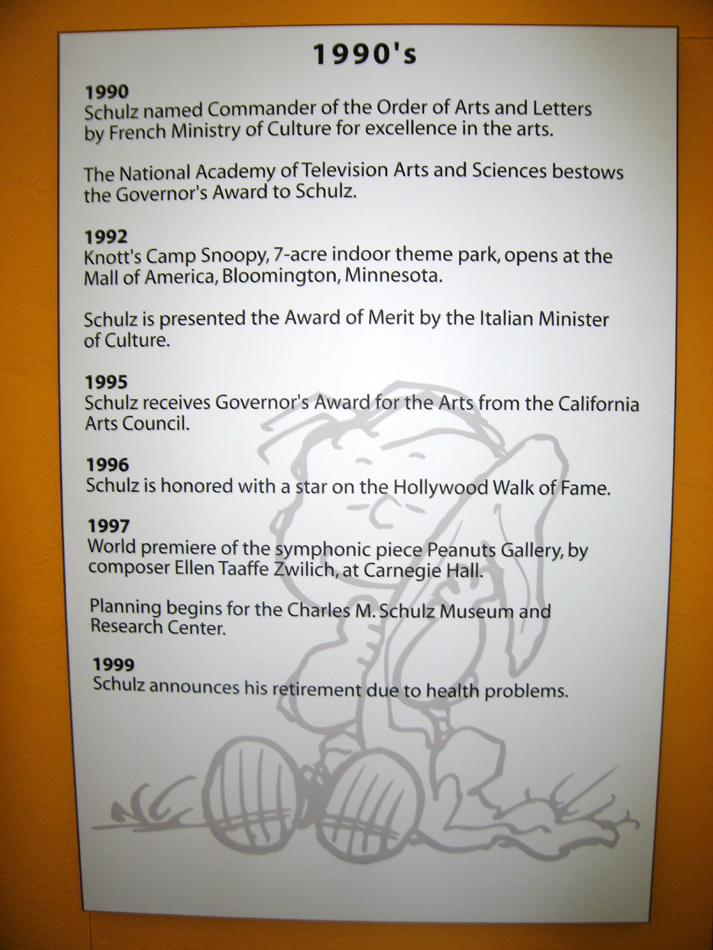 1990's
1990
Schulz named Commander of the Order of Arts and Letters
by French Ministry of Culture for excellence in the arts.
The National Academy of Television Arts and Sciences bestows
the Governor's Award to Schulz.
1992
Knott's Camp Snoopy, 7-acre indoor theme park, opens at the
Mall of America, Bloomington, Minnesota.
Schulz is presented the Award of Merit by the Italian Minister
of Culture.
1995
Schulz receives Governor's Award for the Arts from the California
Arts Council.
1996
Schulz is honored with a star on the Hollywood Walk of Fame.
1997
World premiere of the symphonic piece Peanuts Gallery, by
composer Ellen Taaffe Zwilich, at Carnegie Hall.
Planning begins for the Charles M. Schulz Museum and
Research Center.
1999
Schulz announces his retirement due to health problems.